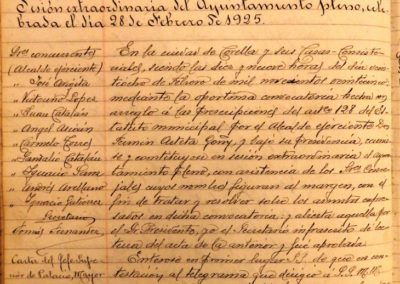 Sesión extraordinaria del Ayuntamiento pleno, cele-
brada el día 28 de Febrero de 1925.
Sres concurrentes
(Alcalde ejerciente)
" José Angós
" Victorino López
" Juan Catalán
" Angel
" Carmelo Torres
" Catalán
" Ignacio
" Andrés Arellano
" Gutierrez
Secretario
Fernandez
Carta del Jefe Supe-
rior de Palacio, Mayor
En la ciudad de Corella y sus Casas Consisto-
riales, siendo las diez y nueve horas del día vein-
tiocho de Febrero de mil novecientos veinticinco,
mediante la oportuna convocatoria hecha con
arreglo á las prescripciones del artº 128 del Es-
tatuto municipal por el Alcalde ejerciente Don
Fermín Goñy, y bajo su presidencia, reunió-
se y constituyó en sesión extraordinaria el ayun-
tamiento pleno, con asistencia de los Sres Conce-
jales cuyos nombres figuran al margen, con el
fin de tratar y resolver sobre los asuntos expre-
sados en dicha convocatoria; y abierta aquella por
el Sr. Presidente, yo el Secretario infrascrito dí lec-
tura del acta de la anterior y fué aprobada.
Enterose en primer lugar S.S. de que en con-
testación al telegrama que dirigió á S.S. M.M.